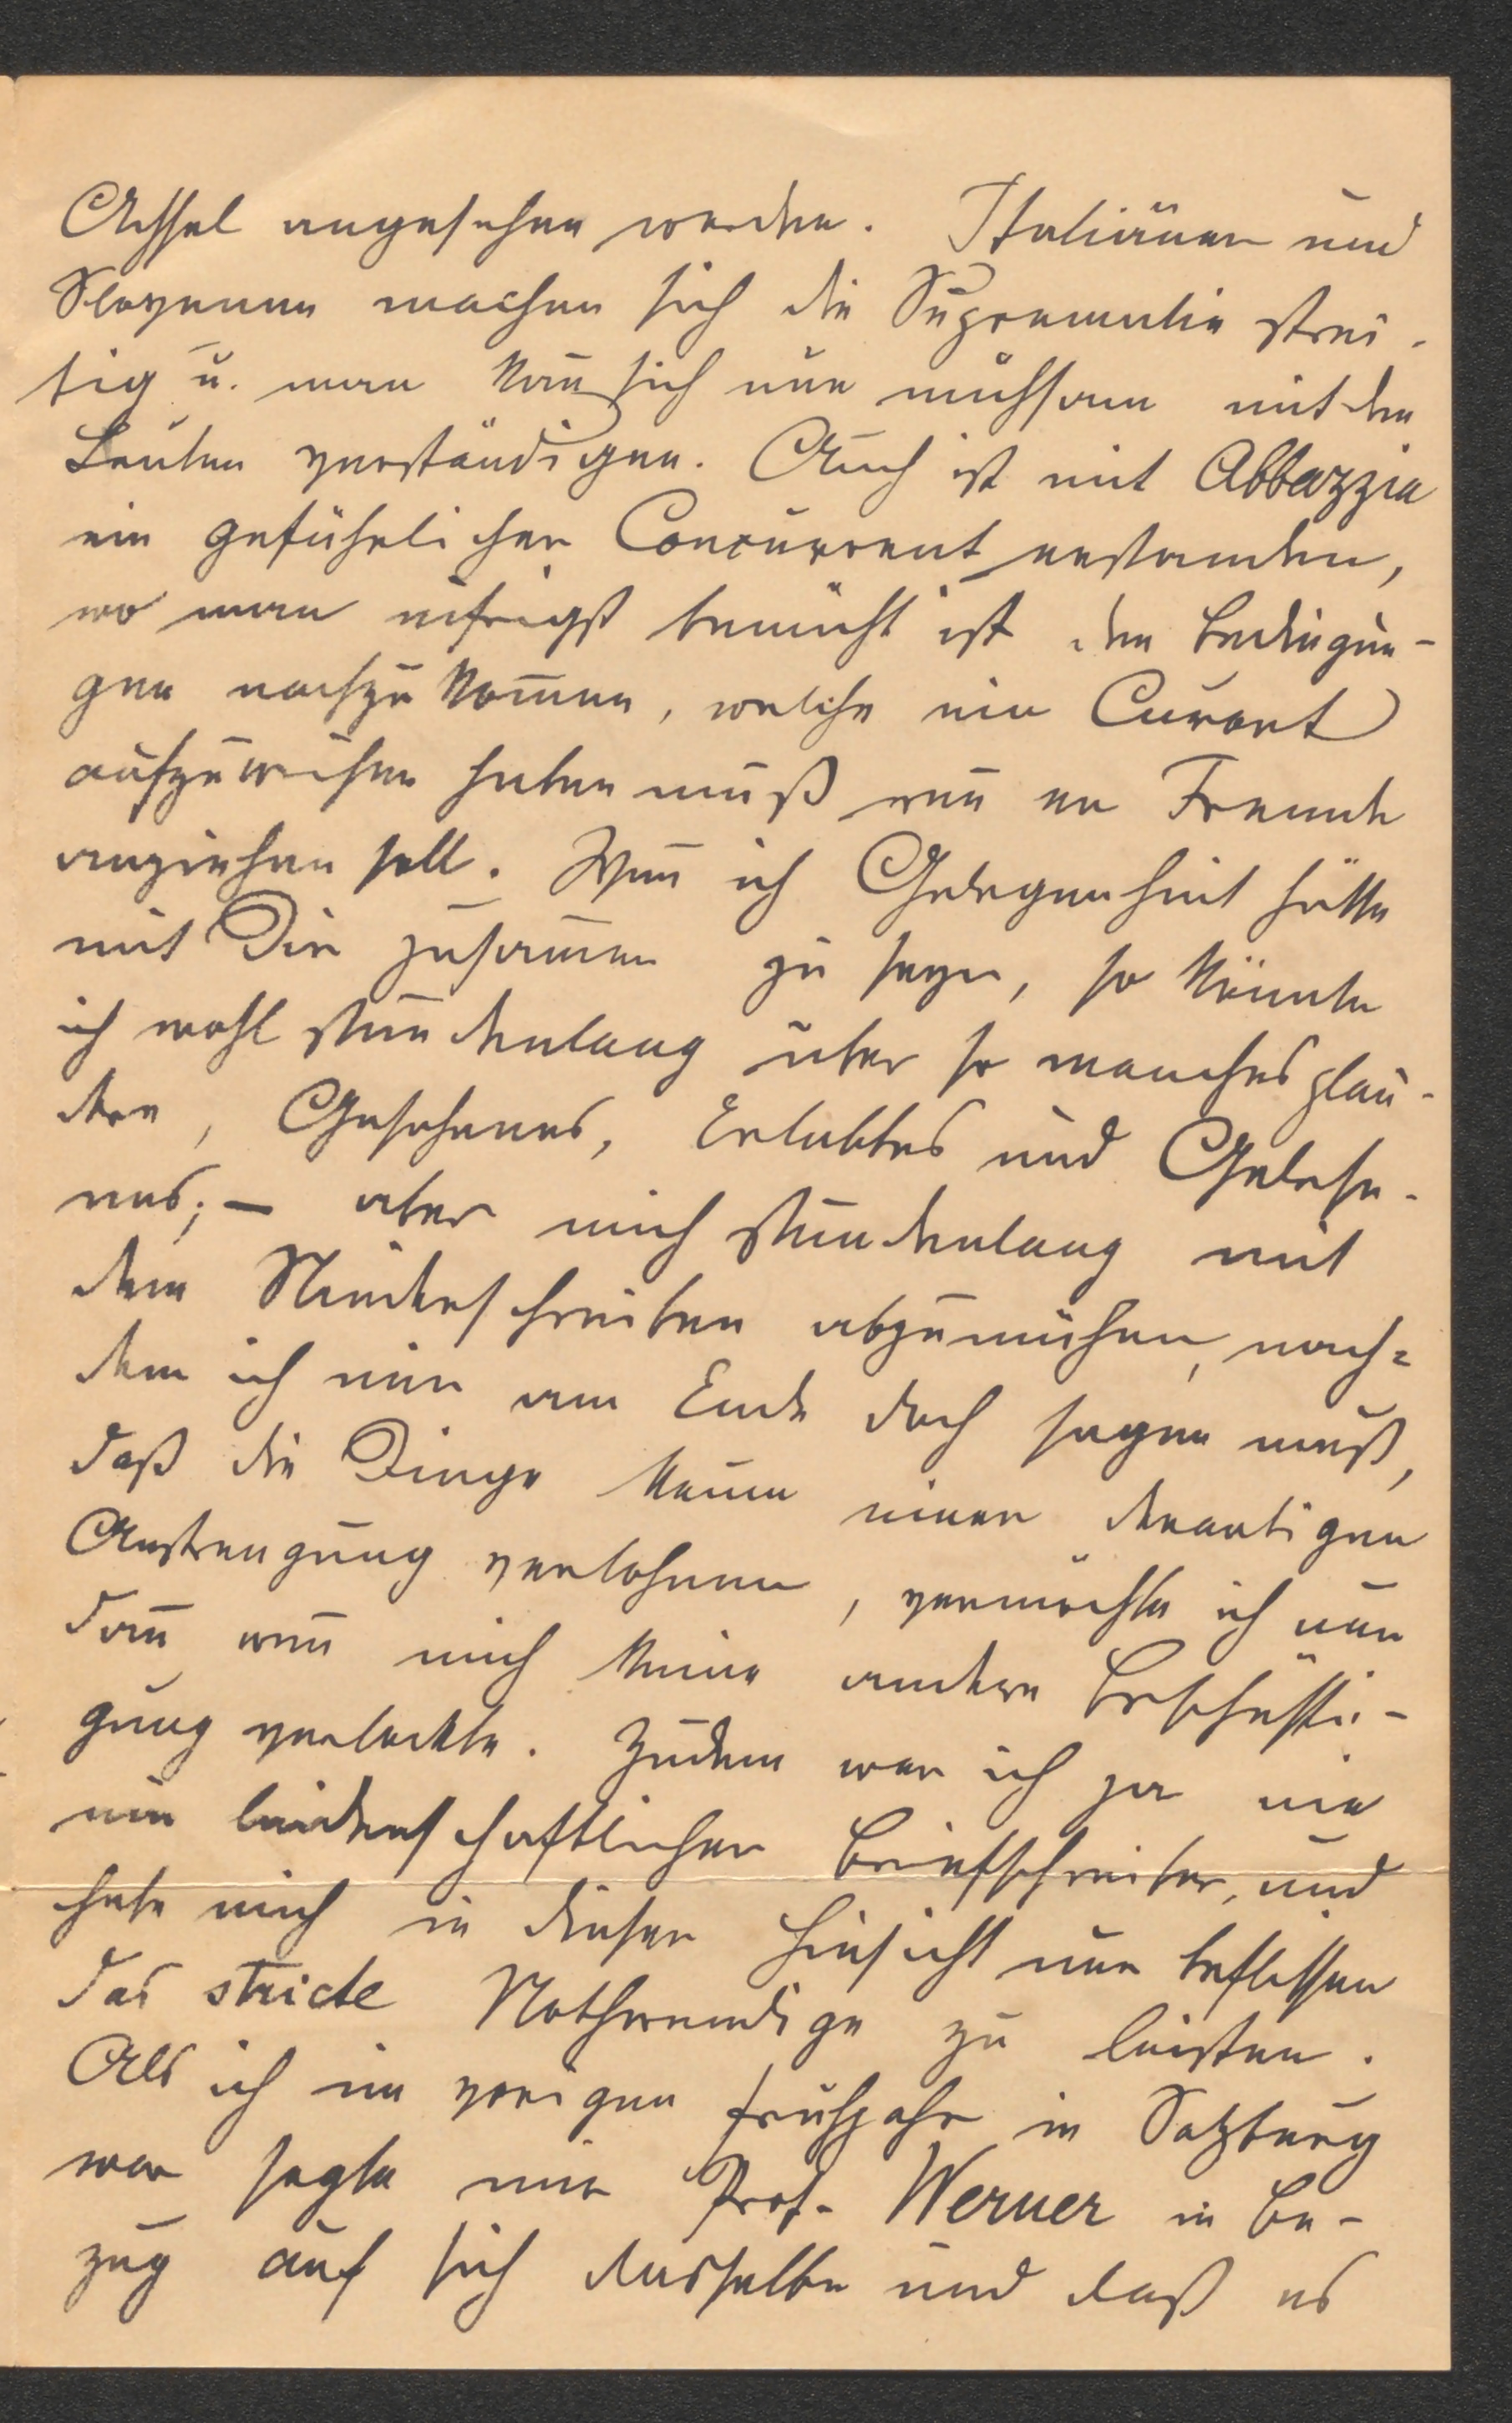 Achsel angesehen werden. Italiäner und
Slovenen machen sich die Suprematie strei-
tig u. man kan̄ sich nur mühsam mit den
Leuten verständigen. Auch ist mit Abbazzia
ein gefährlicher Concurrent erstanden,
wo man eifrigst bemüht ist den Bedingun-
gen nachzukom̄en, welche ein Curort
aufzuweisen haben muß wen̄ er Fremde
anziehen soll. Wen̄ ich Gelegenheit hätte
mit Dir zusam̄en zu seyn, so könnte
ich wohl stundenlang über so manches plau-
dern, Gesehenes, Erlebtes und Gelese-
nes; — aber mich stundenlang mit
dem Niederschreiben abzumühen, nach=
dem ich mir am Ende doch sagen muß,
daß die Dinge kaum einer derartigen
Anstrengung verlohnen, vermöchte ich nur
dan̄ wen̄ mich keine andere Beschäfti-
gung verlockte. Zudem war ich ja nie
ein leidenschaftlicher Briefschreiber, und
habe mich in dieser Hinsicht nur beflissen
das stricte Nothwendige zu leisten.
Als ich im vorigen Frühjahr in Salzburg
war sagte mir Prof. Werner in Be-
zug auf sich dasselbe und daß es